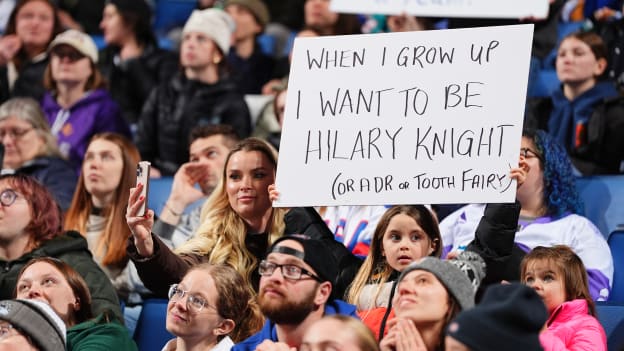 WHEN I GROW UP
I WANT TO BE
HILARY KNIGHT
(OR A DR OR TOOTH FAIRY)